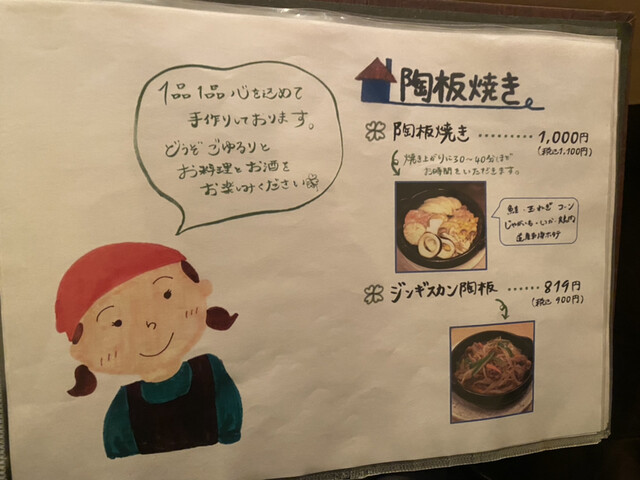 1品1品心を込めて
手作りしております。
どうぞごゆるりと
お料理とお酒を
お楽しみください
陶板焼き
陶板焼き ・・・・・・・・ 1,000円
(税込1,100円)
焼き上がりに30〜40分ほど
お時間をいただきます。
鮭・玉ねぎ コーン
じゃがいも・いか・鶏肉
ジンギスカン陶板 ・・・・・・ 819円
(税込900円)